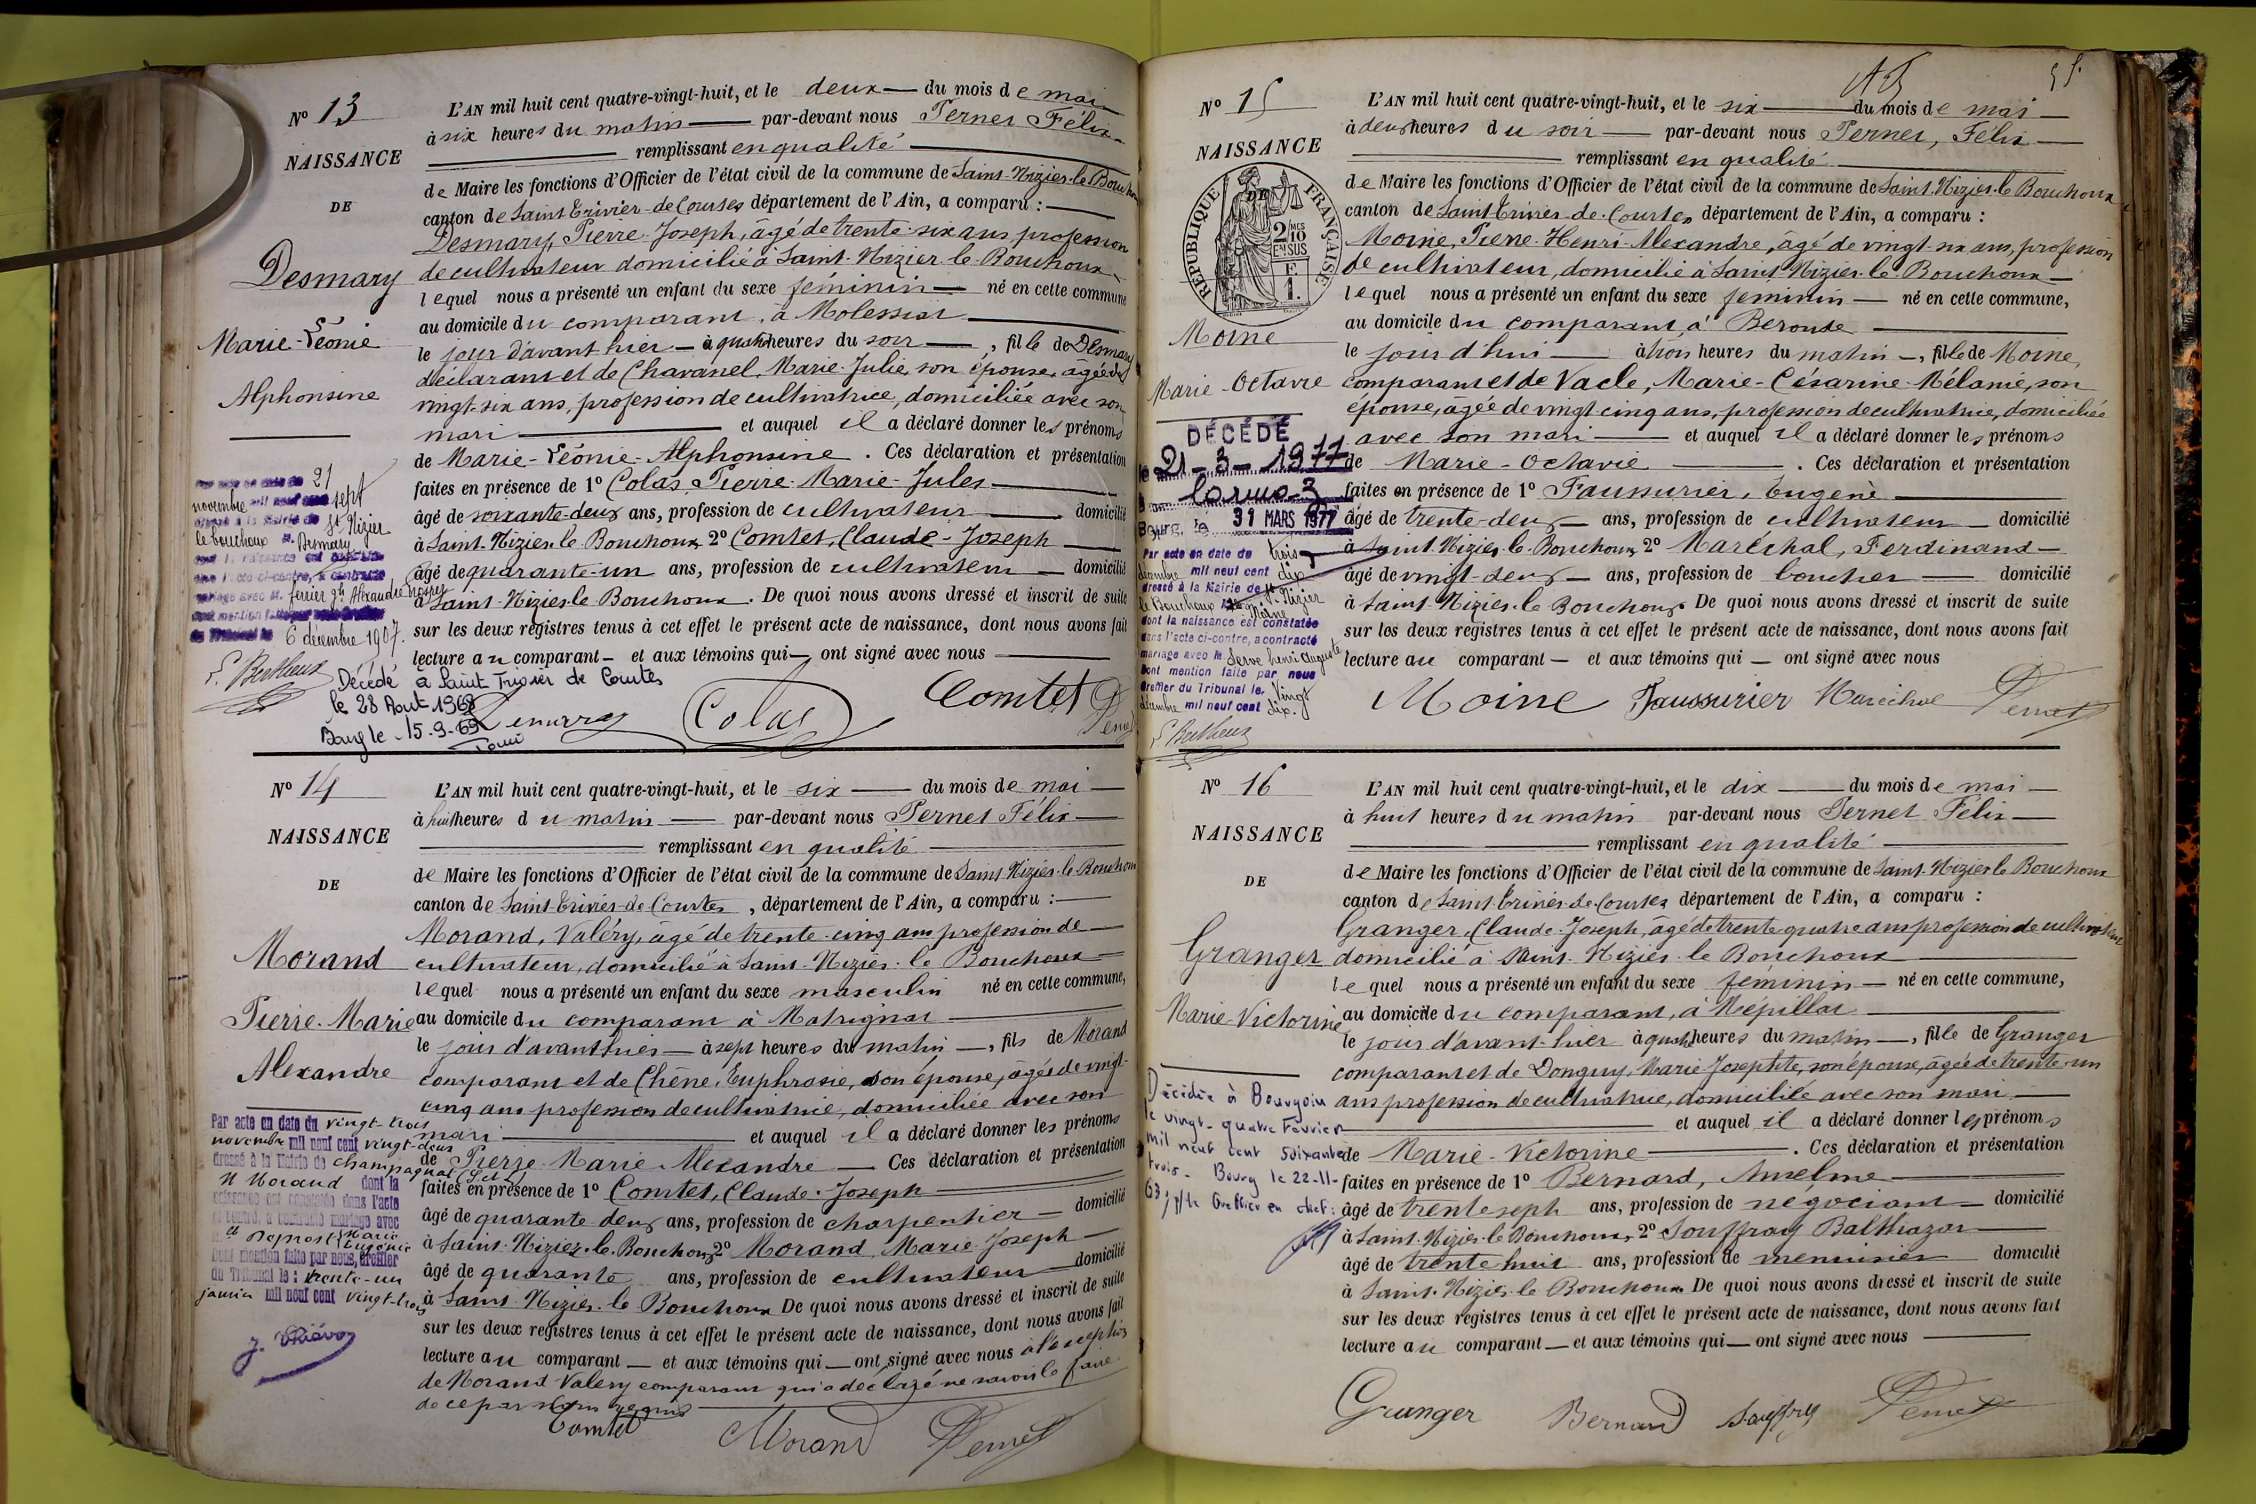 N° 13
NAISSANCE
DE
Desmary
Marie-Léonie
Alphonsine
21
novembre mil neuf cent sept
St Nizier
le bouchoux M. Desmary
mariage avec M. ferrier Jh Alexandre
6 décembre 1907.
L. Bertheux
Décédé à Saint Trivier de Courtes
le 28 Aout 1968
Bourg le 15.9.69
L'AN mil huit cent quatre-vingt-huit, et le deux du mois de mai
à six heures du matin par-devant nous Pernet Félix
remplissant en qualité
de Maire les fonctions d'Officier de l'état civil de la commune de Saint-Nizier-le-Bouchoux
canton de Saint Trivier-de-Courtes département de l'Ain, a comparu :
Desmary, Pierre-Joseph, âgé de trente-six ans, profession
de cultivateur domicilié à Saint-Nizier-le-Bouchoux
lequel nous a présenté un enfant du sexe féminin né en cette commune
au domicile du comparant, à Molessiat
le jour d'avant hier à quatre heures du soir, fille de Desmary
déclarant et de Chavanel, Marie-Julie, son épouse, agée de
vingt-six ans, profession de cultivatrice, domiciliée avec son
mari et auquel il a déclaré donner les prénoms
de Marie-Léonie-Alphonsine. Ces déclaration et présentation
faites en présence de 1° Colas, Pierre-Marie-Jules
âgé de soixante-deux ans, profession de cultivateur domicilié
à Saint-Nizier-le-Bouchoux 2° Comtet, Claude-Joseph
âgé de quarante-un ans, profession de cultivateur domicilié
à Saint-Nizier-le-Bouchoux. De quoi nous avons dressé et inscrit de suite
sur les deux registres tenus à cet effet le présent acte de naissance, dont nous avons fait
lecture au comparant et aux témoins qui ont signé avec nous
Colas Comtet Pernet
N° 14
NAISSANCE
DE
Morand
Pierre-Marie
Alexandre
Par acte en date du vingt-trois
novembre mil neuf cent vingt-deux
dressé à la Mairie de Champagnat (S. et L.)
M Morand dont la
naissance est constatée dans l'acte
ci-contre, a contracté mariage avec
Marie Eugénie
Dont mention faite par nous, Greffier
du Tribunal le : trente-un
janvier mil neuf cent vingt-trois
L'AN mil huit cent quatre-vingt-huit, et le six du mois de mai
à huit heures du matin par-devant nous Pernet Félix
remplissant en qualité
de Maire les fonctions d'Officier de l'état civil de la commune de Saint-Nizier-le-Bouchoux
canton de Saint-Trivier-de-Courtes, département de l'Ain, a comparu :
Morand, Valéry, âgé de trente-cinq ans profession de
cultivateur, domicilié à Saint-Nizier-le-Bouchoux
lequel nous a présenté un enfant du sexe masculin né en cette commune,
au domicile du comparant à Matrignat
le jour d'avant hier à sept heures du matin, fils de Morand
comparant et de Chêne, Euphrasie, son épouse, âgée de vingt-
cinq ans profession de cultivatrice, domiciliée avec son
mari et auquel il a déclaré donner les prénoms
de Pierre Marie Alexandre Ces déclaration et présentation
faites en présence de 1° Comtet, Claude-Joseph
âgé de quarante deux ans, profession de charpentier domicilié
à Saint-Nizier-le-Bouchoux 2° Morand, Marie-Joseph
âgé de quarante ans, profession de cultivateur domicilié
à Saint-Nizier-le-Bouchoux De quoi nous avons dressé et inscrit de suite
sur les deux registres tenus à cet effet le présent acte de naissance, dont nous avons fait
lecture au comparant et aux témoins qui ont signé avec nous à l'exception
de Morand Valery comparant qui a déclaré ne savoir le faire
de ce par nous requis
Comtet Morand Pernet
N° 15
NAISSANCE
DE
RÉPUBLIQUE FRANÇAISE
2/10
EN SUS
Moine
Marie-Octavie
DÉCÉDÉ
le 21-3-1977
à
Bourg, le 31 MARS 1977
Par acte en date du trois
décembre mil neuf cent dix
dressé à la Mairie de St Nizier
le Bouchoux Moine
dont la naissance est constatée
dans l'acte ci-contre, a contracté
mariage avec M Serve henri Auguste
Dont mention faite par nous
Greffier du Tribunal le vingt
décembre mil neuf cent dix.
L. Bertheux
L'AN mil huit cent quatre-vingt-huit, et le six du mois de mai
à deux heures du soir par-devant nous Pernet, Félix
remplissant en qualité
de Maire les fonctions d'Officier de l'état civil de la commune de Saint-Nizier-le-Bouchoux
canton de Saint-Trivier-de-Courtes département de l'Ain, a comparu :
Moine, Pierre-Henri-Alexandre, âgé de vingt-six ans, profession
de cultivateur, domicilié à Saint-Nizier-le-Bouchoux
lequel nous a présenté un enfant du sexe féminin né en cette commune,
au domicile du comparant, à Beroude
le jour d'hui à trois heures du matin, fille de Moine,
comparant et de Vacle, Marie-Césarine-Mélanie, son
épouse, âgée de vingt cinq ans, profession de cultivatrice, domiciliée
avec son mari et auquel il a déclaré donner les prénoms
de Marie-Octavie. Ces déclaration et présentation
faites en présence de 1° Faussurier, Eugène
âgé de trente-deux ans, profession de cultivateur domicilié
à Saint-Nizier-le-Bouchoux 2° Maréchal, Ferdinand
âgé de vingt-deux ans, profession de boucher domicilié
à Saint-Nizier-le-Bouchoux De quoi nous avons dressé et inscrit de suite
sur les deux registres tenus à cet effet le présent acte de naissance, dont nous avons fait
lecture au comparant et aux témoins qui ont signé avec nous
Moine Faussurier Maréchal Pernet
N° 16
NAISSANCE
DE
Granger
Marie-Victorine
Décédée à Bourgoin
le vingt-quatre Février
mil neuf cent soixante
trois. Bourg le 22-11-
63, P/le Greffier en chef :
L'AN mil huit cent quatre-vingt-huit, et le dix du mois de mai
à huit heures du matin par-devant nous Pernet Félix
remplissant en qualité
de Maire les fonctions d'Officier de l'état civil de la commune de Saint-Nizier-le-Bouchoux
canton de Saint-Trivier-de-Courtes département de l'Ain, a comparu :
Granger, Claude-Joseph, âgé de trente quatre ans profession de cultivateur
domicilié à Saint-Nizier-le-Bouchoux
lequel nous a présenté un enfant du sexe féminin né en cette commune,
au domicile du comparant, à Népillat
le jour d'avant-hier à quatre heures du matin, fille de Granger
comparant et de Donguy, Marie-Josephte, son épouse, âgée de trente-un
ans profession de cultivatrice, domiciliée avec son mari
et auquel il a déclaré donner les prénoms
de Marie-Victorine. Ces déclaration et présentation
faites en présence de 1° Bernard, Anselme
âgé de trente sept ans, profession de négociant domicilié
à Saint-Nizier-le-Bouchoux, 2° Souffray Balthazar
âgé de trente huit ans, profession de menuisier domicilié
à Saint-Nizier-le-Bouchoux De quoi nous avons dressé et inscrit de suite
sur les deux registres tenus à cet effet le présent acte de naissance, dont nous avons fait
lecture au comparant et aux témoins qui ont signé avec nous
Granger Bernard Souffray Pernet